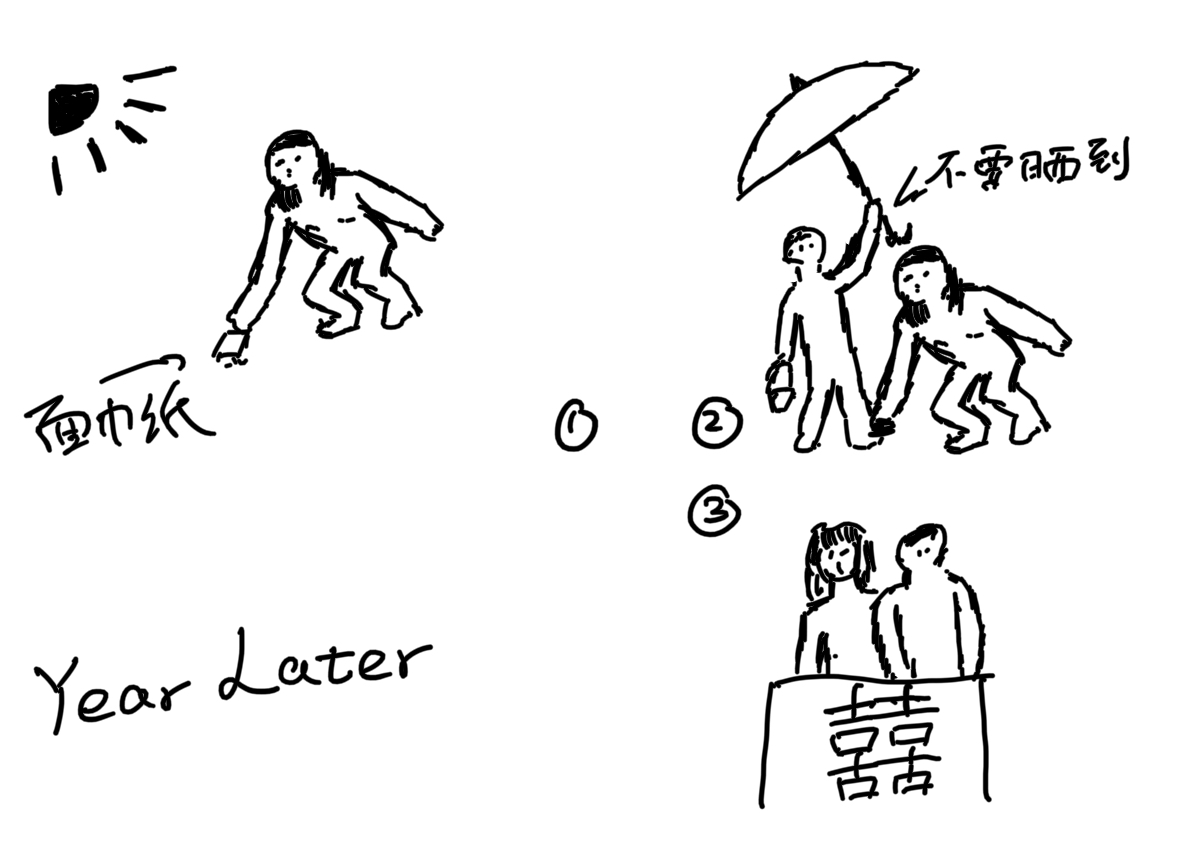 面巾纸
①
②
不要晒到
③
Year Later
囍